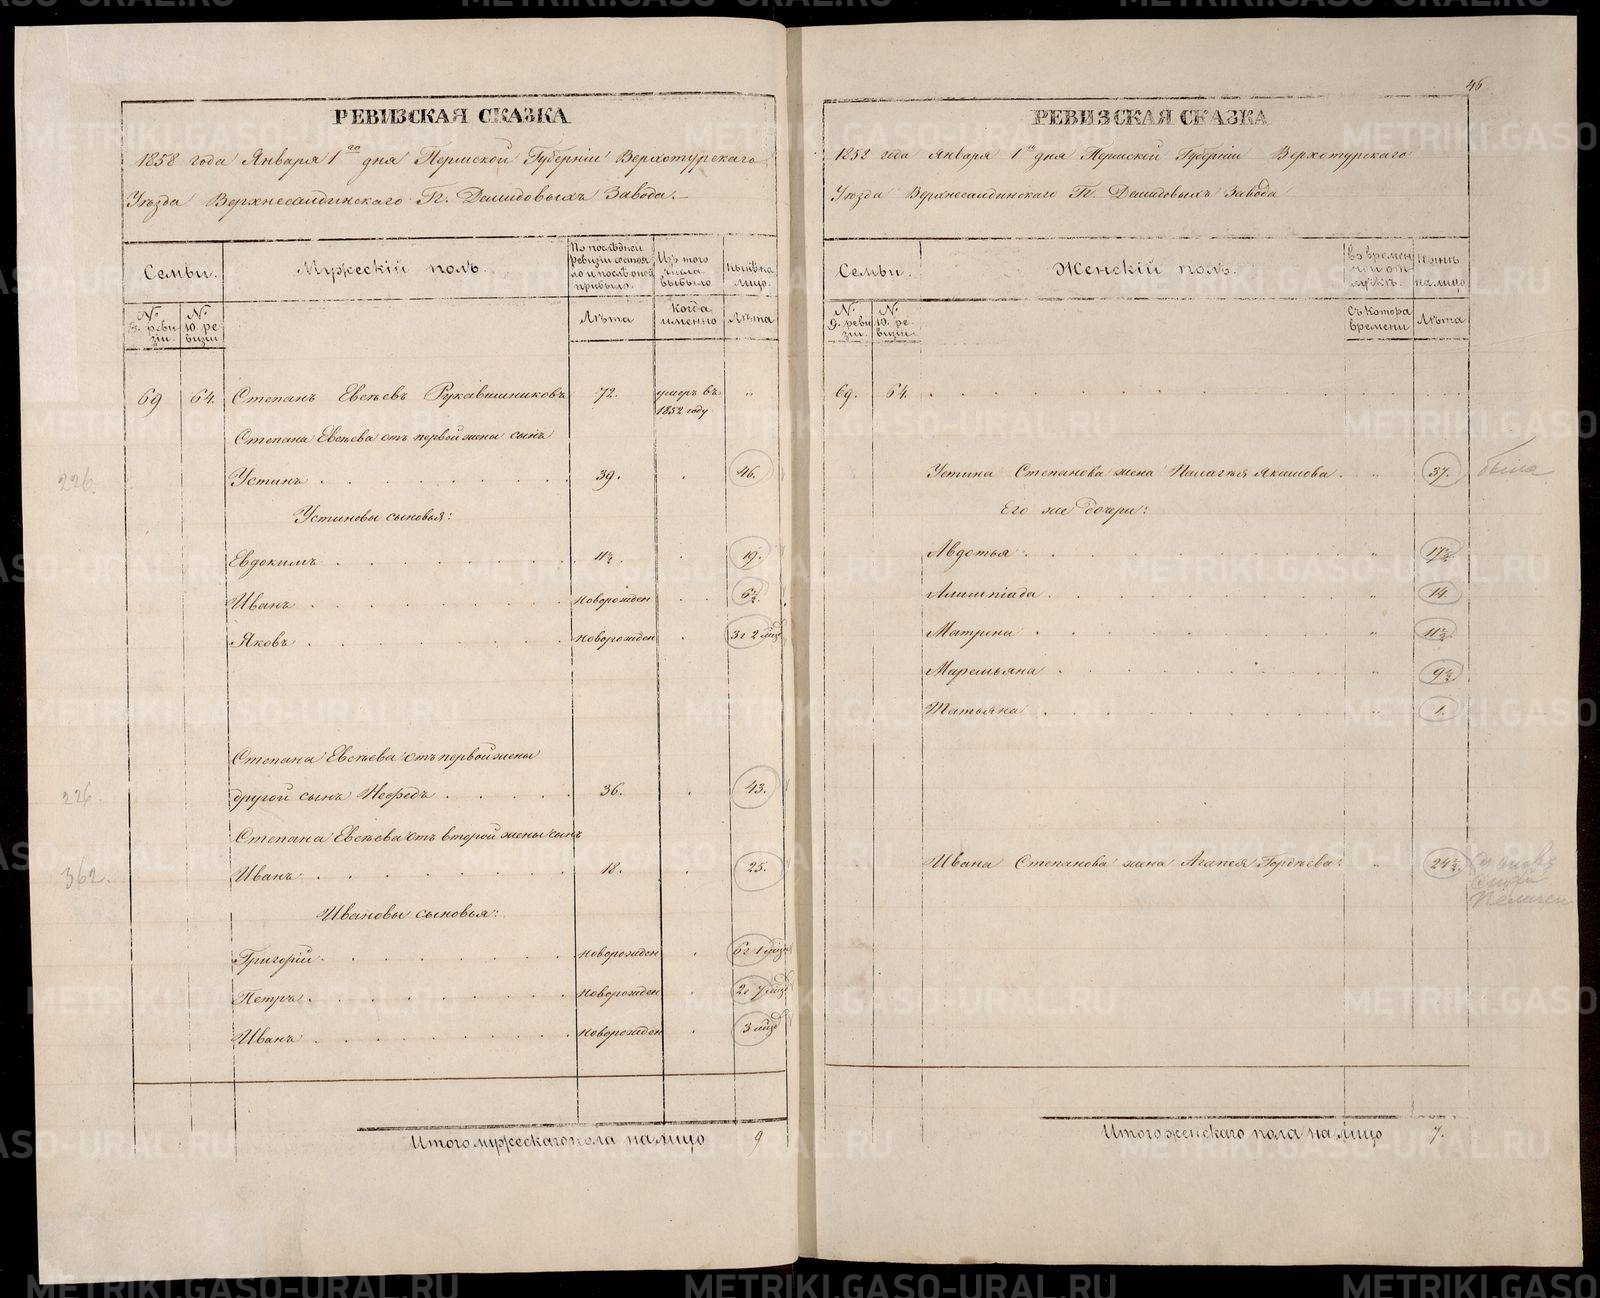 РЕВИЗСКАЯ СКАЗКА
1858 года Января 1го дня Пермской Губерніи Верхотурскаго
Уѣзда Верхнесалдинскаго Гг. Демидовыхъ Завода.
Семьи.
Мужескій полъ.
По послѣдней ревизіи состояло и послѣ оной прибыло.
Изъ того числа выбыло
Нынѣ на лицо.
№ 9. ревизіи
№ 10. ревизіи
Лѣта
Когда именно
Лѣта
69 64. Степанъ Евсѣевъ Рукавишниковъ 72. умеръ въ 1852 году. "
Степана Евсѣева отъ первой жены сынъ
226.
Устинъ 39. 46.
Устиновы сыновья:
Евдокимъ 11½. 19.
Иванъ новорожден 6½.
Яковъ новорожден 3г 2 мѣс
Степана Евсѣева отъ первой жены
226.
другой сынъ Мефедъ 36. 43.
Степана Евсѣева отъ второй жены сынъ
362.
Иванъ 18. 25.
Ивановы сыновья:
Григорій новорожден 6г 1 мѣс
Петръ новорожден 2г 7 мѣс
Иванъ новорожден 3 мѣс
Итого мужескаго пола на лицо 9
46
РЕВИЗСКАЯ СКАЗКА
1858 года Января 1го дня Пермской Губерніи Верхотурскаго
Уѣзда Верхнесалдинскаго Гг. Демидовыхъ Завода
Семьи.
Женскій полъ.
Во временной отлучкѣ.
Нынѣ на лицо
№ 9. ревизіи
№ 10. ревизіи
Съ котораго времени
Лѣта
69. 64.
Устина Степанова жена Палагѣя Акимова 37.
была
Его же дочери:
Авдотья " 17½.
Алимпіада " 14.
Матрена " 11½
Маремьяна " 9½
Татьяна " 1.
Ивана Степанова жена Агапея Гордѣева " 24½.
Итого женскаго пола на лицо 7.
METRIKI.GASO-URAL.RU